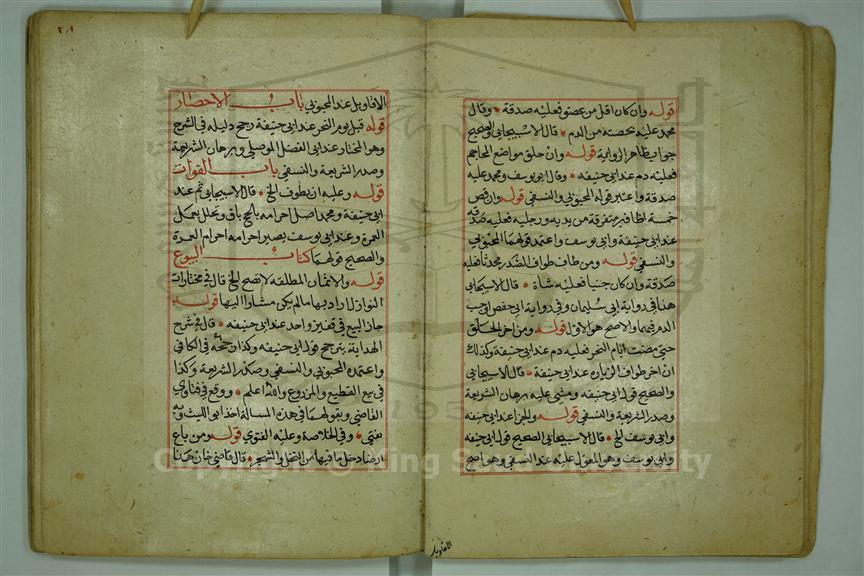 قوله وان كان اقل من عضو فعليه صدقة وقال
محمد عليه بحصته من الدم قال الاسبيجابي والصحيح
جواب ظاهر الرواية قوله وان حلق مواضع المحاجم
فعليه دم عند ابي حنيفه وقال ابو يوسف ومحمد عليه
صدقة واعتبر قوله المحبوبي والنسفي قوله وان قص
خمسة اظافير متفرقة من يديه ورجليه فعليه صدقه
عند ابي حنيفة وابي يوسف واعتمد قولهما المحبوبي
والنسفي قوله ومن طاف طواف الصدر محدثا فعليه
صدقة وان كان جنبا فعليه شاة قال الاسبيجابي
هذا في رواية ابي سليمان وفي رواية ابي حفص
الدم فيهما والاصح هو الاول قوله ومن اخر الحلق
حتى مضت ايام النحر فعليه دم عند ابي حنيفة وكذلك
ان اخر طواف الزيارة عند ابي حنيفة قال الاسبيجابي
والصحيح قول ابي حنيفه ومشى عليه برهان الشريعة
وصدر الشريعة والنسفي قوله والجزا عند ابي حنيفه
وابي يوسف الخ قال الاسبيجابي الصحيح قول ابي حنيفه
وابي يوسف وهو المعول عليه عند النسفي وهو اصح
الاقاويل
٢٨١
الاقاويل عند المحبوبي باب الاحصار
قوله قبل يوم النحر عند ابي حنيفة رجح دليله في الشرح
وهو المختار عند ابي الفضل الموصلي وبرهان الشريعة
وصدر الشريعة والنسفي باب الفوات
قوله وعليه ان يطوف الخ قال الاسبيجابي ثم عند
ابي حنيفة ومحمد اصل احرامه بالحج باق ويتحلل بعمل
العمرة وعند ابي يوسف يصير احرامه احرام العمرة
والصحيح قولهما كتاب البيوع
قوله والاثمان المطلقه لا تصح الخ قال في مختارات
النوازل اراد بها مالم يكن مشارا اليها قوله
جاز البيع في قفيز واحد عند ابي حنيفه قال في شرح
الهداية يترجح قول ابي حنيفه وكذا رجحه في الكافي
واعتمده المحبوبي والنسفي وصدر الشريعة وكذا
في بيع القطيع والمزروع والله اعلم ووقع في فتاوي
القاضي وبقولهما في هذه المسالة اخذ ابو الليث وبه
نفتي وفي الخلاصة وعليه الفتوى قوله ومن باع
ارضا دخل ما فيها من النخل والشجر قال قاضي خان هذا
Copyright © King Saud University
195